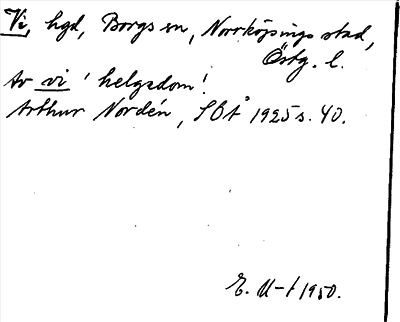 Vi, hgd, Borgs sn, Norrköpings stad,
Östg. l.
Av vi 'helgedom'.
Arthur Nordén, SOÅ 1925 s. 40.
E. U-t 1950.